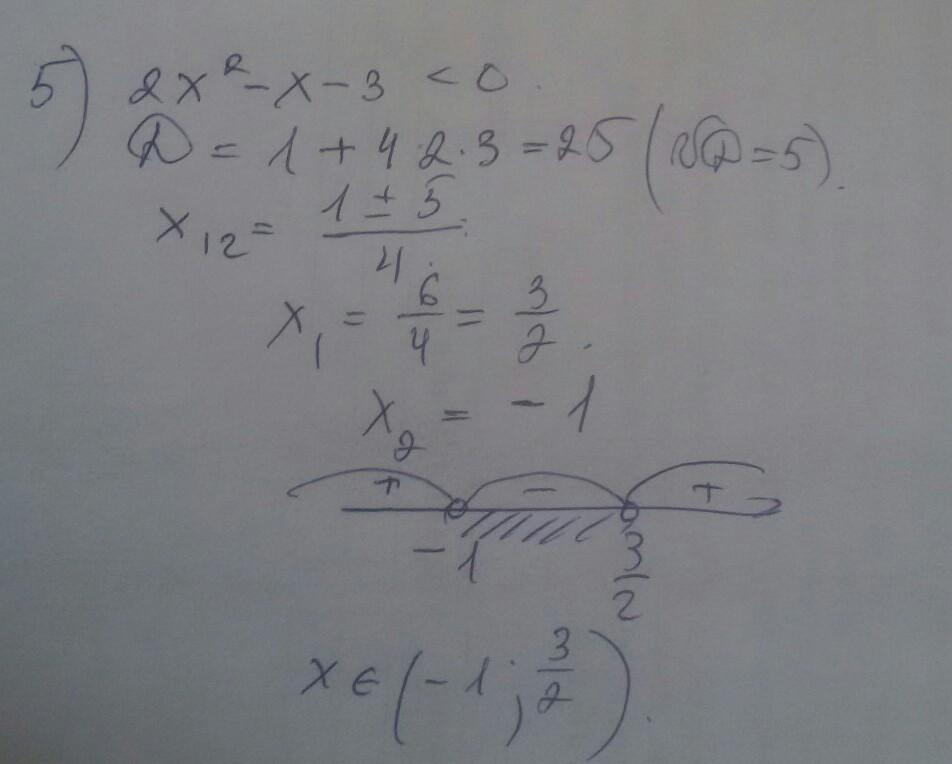 5) 2x² - x - 3 < 0.
D = 1 + 4·2·3 = 25 (√D = 5).
x₁₂ = (1 ± 5)/4.
x₁ = 6/4 = 3/2.
x₂ = -1
+ - +
-1 3/2
x ∈ (-1; 3/2).